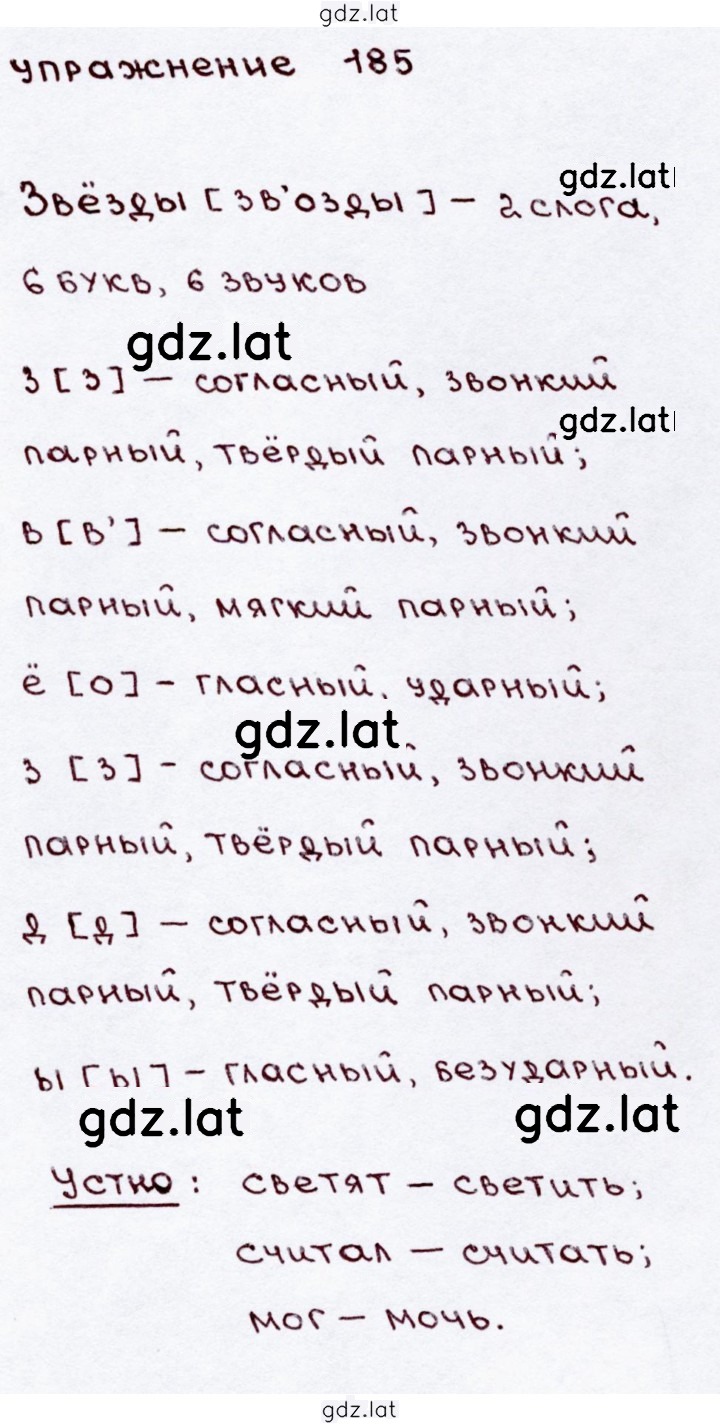 gdz.lat
упражнение 185
gdz.lat
Звёзды [зв'озды] – 2 слога,
6 букв, 6 звуков
gdz.lat
з [з] – согласный, звонкий
gdz.lat
парный, твёрдый парный;
в [в'] – согласный, звонкий
парный, мягкий парный;
ё [о] – гласный. ударный;
gdz.lat
з [з] – согласный, звонкий
парный, твёрдый парный;
д [д] – согласный, звонкий
парный, твёрдый парный;
ы [ы] – гласный, безударный.
gdz.lat gdz.lat
Устно: светят – светить;
считал – считать;
мог – мочь.
gdz.lat